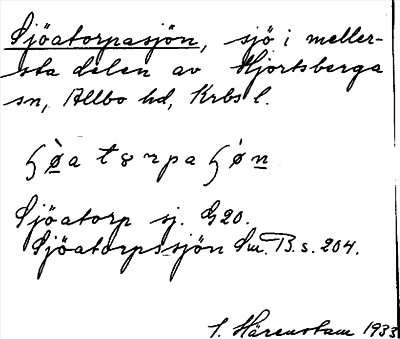 Sjöatorpasjön, sjö i meller-
sta delen av Hjortsberga
sn, Allbo hd, Krbs l.
Sjöatorp sj. G20.
Sjöatorpssjön Sm. B. s. 204.
S. Härenstam 1933